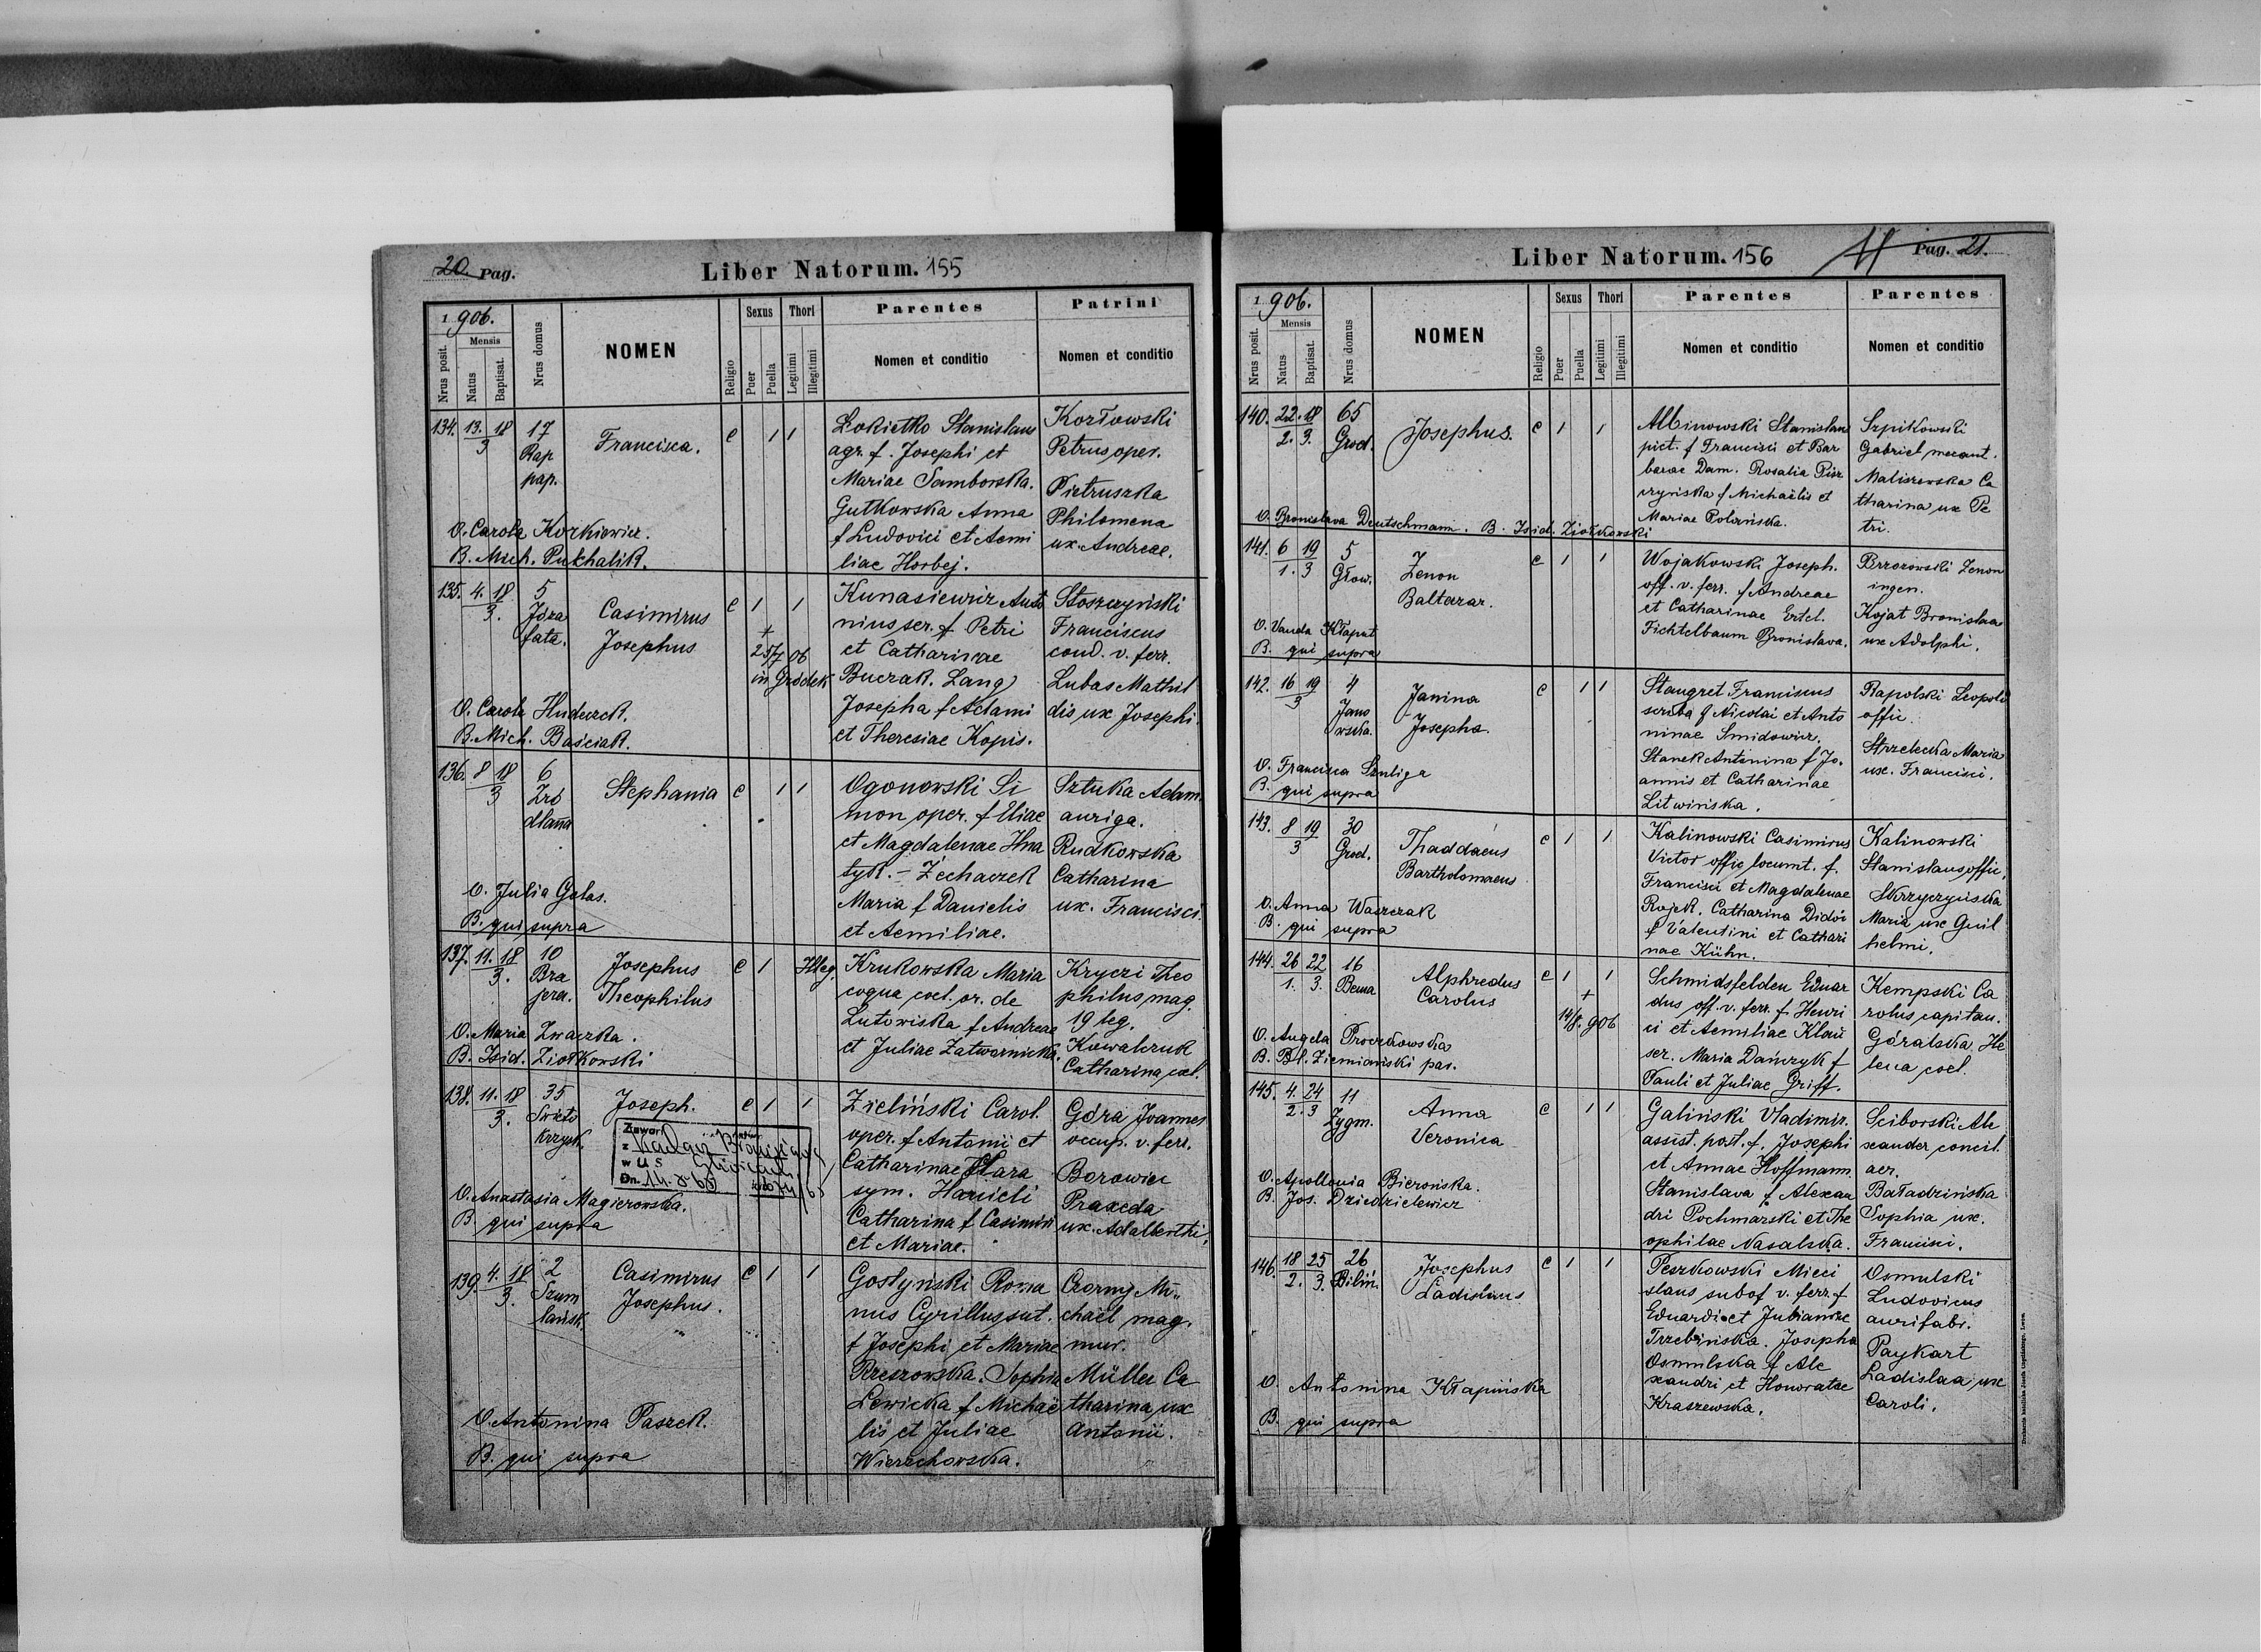 20. Pag.
Liber Natorum. 155
1906.
Nrus posit.
Mensis
Natus
Baptisat.
Nrus domus
NOMEN
Religio
Sexus
Puer
Puella
Thori
Legitimi
Illegitimi
Parentes
Nomen et conditio
Patrini
Nomen et conditio
134. 13. 18 17 Francisca. c 1 1 Łokietko Stanislaus Kozłowski
3 Rap agr. f. Josephi et Petrus oper.
pap. Mariae Samborska. Pietruszka
Gutkowska Anna Philomena
O. Carola Korkiewicz. f Ludovici et Aemi ux. Andreae.
B. Mich. Pukhalik. liae Horbej.
135. 4. 18 5 Casimirus c 1 1 Kunasiewicz Anto Stoszczyński
3. Joza Josephus + nius ser. f Petri Franciscus
fata. 25/7 06 et Catharinae cond. v. ferr.
in Gródek Buczak. Lang Lubas Mathil
O. Carola Huderek. Josepha f Adami dis ux Josephi
B. Mich. Baściak. et Theresiae Kopis.
136. 8 18 6 Stephania c 1 1 Ogonowski Si Sztuka Adam
3 Zró mon oper. f Eliae auriga.
dlana et Magdalenae Hna Rudkowska
tyk. - Zechaczek Catharina
O. Julia Galas. Maria f Danielis ux. Francisci.
B. qui supra et Aemiliae.
137. 11. 18 10 Josephus c 1 Illeg. Krukowska Maria Kryczi Theo
3. Bra Theophilus coqua coel. or. de philus mag.
jera. Lutowiska f Andreae 19 leg.
O. Maria Zwaczka. et Juliae Zatwarnicka. Kowalczuk
B. Isid. Ziołkowski Catharina coel.
138. 11. 18 35 Joseph. c 1 1 Zieliński Carol. Góra Joannes
3. Swięto oper. f Antonii et occup. v. ferr.
krzysk. Catharinae Hara Borowiec
Zawarł
w U S
Dn. 14. 8 65
sym. Hanicli Praxeda
O. Anastasia Magierowska. Catharina f Casimiri ux. Adalberthi.
B. qui supra et Mariae.
139. 4. 18 2 Casimirus c 1 1 Gostyński Roma Czorny Mi-
3. Szum Josephus. nus Cyrillus sut. chaël mag.
lańsk. f Josephi et Mariae mur.
Rzeszowska. Sophia Müller Ca
Lewicka f Michaë tharina ux
O. Antonina Paszek. lis et Juliae Antonii.
B. qui supra Wierzchowska.
Liber Natorum. 156
Pag. 21.
1906.
Nrus posit.
Mensis
Natus
Baptisat.
Nrus domus
NOMEN
Religio
Sexus
Puer
Puella
Thori
Legitimi
Illegitimi
Parentes
Nomen et conditio
Parentes
Nomen et conditio
140. 22. 18 65 Josephus. c 1 1 Albinowski Stanislaus Szpitkowski
2. 3. Grod. pict. f Francisci et Bar Gabriel mecant.
barae Dam. Rosalia Pisz Maliszewska Ca
czyńska f Michaëlis et tharina ux Pe
Mariae Polańska. tri.
O. Bronislava Deutschmann. B. Isid. Ziołkowski
141. 6 19 5 Zenon c 1 1 Wojakowski Joseph. Brzozowski Zenon
1. 3 Głow. Baltazar. off. v. ferr. f Andreae ingen.
et Catharinae Ertel. Kojat Bronislaa
O. Vanda Kłaput Fichtelbaum Bronislava. ux Adolphi.
B. qui supra
142. 16 19 4 Janina c 1 1 Staugret Franciscus Rapolski Leopold
3 Jano Josepha. scriba f Nicolai et Anto offic.
wska. ninae Smidowicz. Strzelecka Maria
O. Francisca Szuliga Stanek Antonina f Jo. ux. Francisci.
B. qui supra annis et Catharinae
Litwińska.
143. 8 19 30 Thaddaeus c 1 1 Kalinowski Casimirus Kalinowski
3 Grod. Bartholomaeus Victor offic locumt. f. Stanislaus offic.
Francisci et Magdalenae Skrzyczyńska
O. Anna Waszczak Rojek. Catharina Didór Maria ux Guil
B. qui supra f Valentini et Cathari helmi.
nae Kühn.
144. 26 22 16 Alphredus c 1 1 Schmidsfelden Eduar Kempski Ca
1. 3. Bema Carolus + dus off. v. ferr. f. Henri rolus capitan.
14/8. 906 ci et Aemiliae Klau Góralska He
O. Angela Proczkowska ser. Maria Dańczyk f lena coel.
B. Bl. Ziemiański par. Pauli et Juliae Griff.
145. 4. 24 11 Anna c 1 1 Galiński Vladimir. Sciborski Ale
2. 3 Zygm. Veronica assist. post. f. Josephi xander concil.
et Annae Hoffmann. aer.
O. Apollonia Bierońska. Stanislava f Alexan Baładzińska
B. Jos. Dziedzielewicz dri Pochmarski et The Sophia ux.
ophilae Nasalska. Francisci.
146. 18 25 26 Josephus c 1 1 Peszkowski Mieci Osmulski
2. 3. Biliń. Ladislaus slaus subof v. ferr. f Ludovicus
Eduardi et Julianae aurifabr.
Trzebińska. Josepha Paykart
Osmulska f Ale Ladislaa ux
O. Antonina Kłapińska xandri et Honoratae Caroli.
B. qui supra Kraszewska.